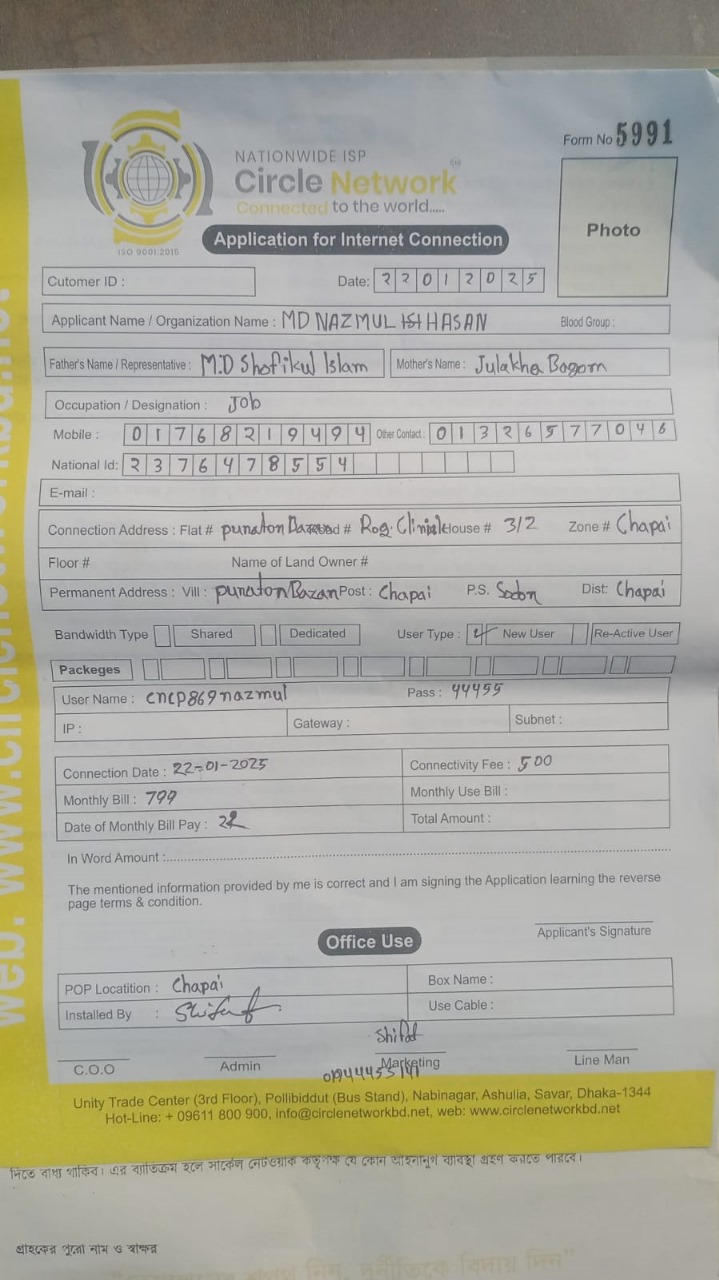 Form No 5991
NATIONWIDE ISP
Circle Network
Connected to the world.....
ISO 9001:2015
Application for Internet Connection
Photo
Cutomer ID :
Date: 22012025
Applicant Name / Organization Name : MD NAZMUL HASAN
Blood Group :
Father's Name / Representative : M.D Shofikul Islam
Mother's Name : Julakha Bogom
Occupation / Designation : Job
Mobile : 01768219494 Other Contact : 01326577046
National Id: 2376478554
E-mail :
Connection Address : Flat # punaton # Rog. House # 3/2 Zone # Chapai
Floor # Name of Land Owner #
Permanent Address : Vill : punaton Bazan Post : Chapai P.S. Sodon Dist: Chapai
Bandwidth Type Shared Dedicated User Type : New User Re-Active User
Packeges
User Name : cncp869nazmul Pass : 44455
IP : Gateway : Subnet :
Connection Date : 22-01-2025 Connectivity Fee : 500
Monthly Bill : 799 Monthly Use Bill :
Date of Monthly Bill Pay : 22 Total Amount :
In Word Amount :
The mentioned information provided by me is correct and I am signing the Application learning the reverse
page terms & condition.
Applicant's Signature
Office Use
POP Locatition : Chapai Box Name :
Installed By : Use Cable :
Shifat
C.O.O Admin Marketing Line Man
Unity Trade Center (3rd Floor), Pollibiddut (Bus Stand), Nabinagar, Ashulia, Savar, Dhaka-1344
Hot-Line: + 09611 800 900, info@circlenetworkbd.net, web: www.circlenetworkbd.net
web: www.circlenetworkbd.net
দিতে বাধ্য থাকিব। এর ব্যতিক্রম হলে সার্কেল নেটওয়ার্ক কতৃপক্ষ যে কোন আইনানুগ ব্যবস্থা গ্রহণ করতে পারবে।
গ্রাহকের পুরো নাম ও স্বাক্ষর